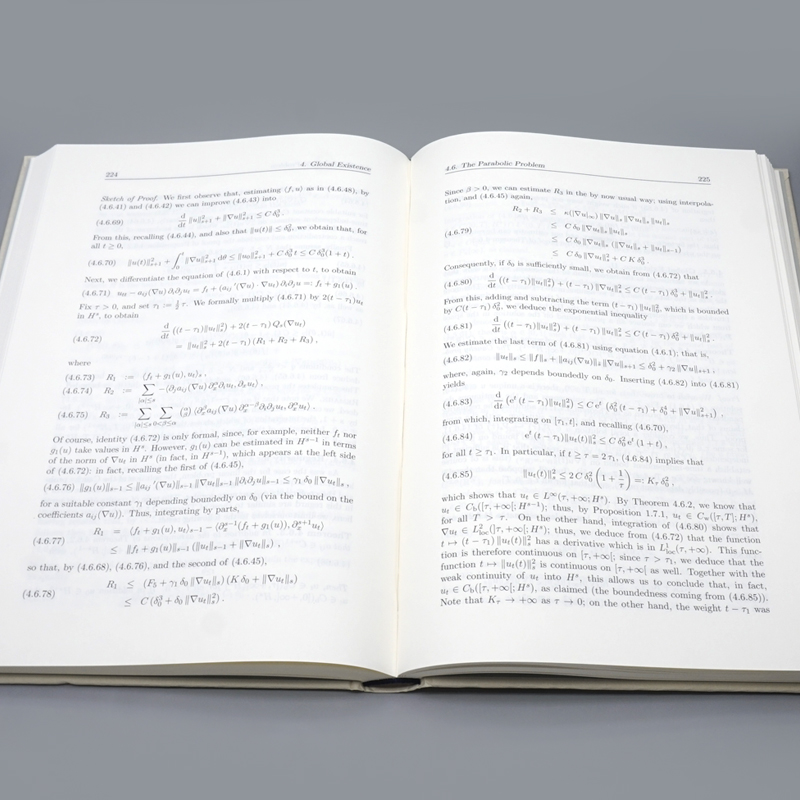 224
4. Global Existence
Sketch of Proof. We first observe that, estimating ⟨f, u⟩ as in (4.6.48), by
(4.6.41) and (4.6.42) we can improve (4.6.43) into
(4.6.69) d/dt ‖u‖²ₛ₊₁ + ‖∇u‖²ₛ₊₁ ≤ C δ₀² .
From this, recalling (4.6.44), and also that ‖u(t)‖ ≤ δ₀², we obtain that, for
all t ≥ 0,
(4.6.70) ‖u(t)‖²ₛ₊₁ + ∫₀ᵗ ‖∇u‖²ₛ₊₁ dθ ≤ ‖u₀‖²ₛ₊₁ + C δ₀² t ≤ C δ₀² (1 + t) .
Next, we differentiate the equation of (4.6.1) with respect to t, to obtain
(4.6.71) uₜₜ − aᵢⱼ(∇u) ∂ᵢ∂ⱼuₜ = fₜ + (aᵢⱼ′(∇u) · ∇uₜ) ∂ᵢ∂ⱼu =: fₜ + g₁(u) .
Fix τ > 0, and set τ₁ := ½ τ. We formally multiply (4.6.71) by 2(t − τ₁)uₜ
in Hˢ, to obtain
(4.6.72) d/dt ((t − τ₁)‖uₜ‖²ₛ) + 2(t − τ₁) Qₛ(∇uₜ)
= ‖uₜ‖²ₛ + 2(t − τ₁) (R₁ + R₂ + R₃) ,
where
(4.6.73) R₁ := ⟨fₜ + g₁(u), uₜ⟩ₛ ,
(4.6.74) R₂ := ∑|α|≤s −⟨∂ⱼaᵢⱼ(∇u) ∂ₓᵅ∂ᵢuₜ, ∂ₓᵅuₜ⟩ ,
(4.6.75) R₃ := ∑|α|≤s ∑0<β≤α (α β) ⟨∂ₓᵝaᵢⱼ(∇u) ∂ₓᵅ⁻ᵝ∂ᵢ∂ⱼuₜ, ∂ₓᵅuₜ⟩ .
Of course, identity (4.6.72) is only formal, since, for example, neither fₜ nor
g₁(u) take values in Hˢ. However, g₁(u) can be estimated in Hˢ⁻¹ in terms
of the norm of ∇uₜ in Hˢ (in fact, in Hˢ⁻¹), which appears at the left side
of (4.6.72): in fact, recalling the first of (4.6.45),
(4.6.76) ‖g₁(u)‖ₛ₋₁ ≤ ‖aᵢⱼ′(∇u)‖ₛ₋₁ ‖∇uₜ‖ₛ₋₁ ‖∂ᵢ∂ⱼu‖ₛ₋₁ ≤ γ₁ δ₀ ‖∇uₜ‖ₛ ,
for a suitable constant γ₁ depending boundedly on δ₀ (via the bound on the
coefficients aᵢⱼ(∇u)). Thus, integrating by parts,
(4.6.77) R₁ = ⟨fₜ + g₁(u), uₜ⟩ₛ₋₁ − ⟨∂ₓˢ⁻¹(fₜ + g₁(u)), ∂ₓˢ⁺¹uₜ⟩
≤ ‖fₜ + g₁(u)‖ₛ₋₁ (‖uₜ‖ₛ₋₁ + ‖∇uₜ‖ₛ) ,
so that, by (4.6.68), (4.6.76), and the second of (4.6.45),
(4.6.78) R₁ ≤ (F₀ + γ₁ δ₀ ‖∇uₜ‖ₛ) (K δ₀ + ‖∇uₜ‖ₛ)
≤ C (δ₀³ + δ₀ ‖∇uₜ‖²ₛ) .
4.6. The Parabolic Problem
225
Since β > 0, we can estimate R₃ in the by now usual way; using interpola-
tion, and (4.6.45) again,
R₂ + R₃ ≤ κ(|∇u|∞) ‖∇u‖ₛ ‖∇uₜ‖ₛ ‖uₜ‖ₛ
≤ C δ₀ ‖∇uₜ‖ₛ ‖uₜ‖ₛ
(4.6.79)
≤ C δ₀ ‖∇uₜ‖ₛ (‖∇uₜ‖ₛ + ‖uₜ‖ₛ₋₁)
≤ C δ₀ ‖∇uₜ‖²ₛ + C K δ₀³ .
Consequently, if δ₀ is sufficiently small, we obtain from (4.6.72) that
(4.6.80) d/dt ((t − τ₁)‖uₜ‖²ₛ) + (t − τ₁) ‖∇uₜ‖²ₛ ≤ C (t − τ₁) δ₀³ + ‖uₜ‖²ₛ .
From this, adding and subtracting the term (t − τ₁) ‖uₜ‖²ₛ, which is bounded
by C(t − τ₁) δ₀², we deduce the exponential inequality
(4.6.81) d/dt ((t − τ₁)‖uₜ‖²ₛ) + (t − τ₁) ‖uₜ‖²ₛ ≤ C (t − τ₁) δ₀² + ‖uₜ‖²ₛ .
We estimate the last term of (4.6.81) using equation (4.6.1); that is,
(4.6.82) ‖uₜ‖ₛ ≤ ‖f‖ₛ + ‖aᵢⱼ(∇u)‖ₛ ‖∇u‖ₛ₊₁ ≤ δ₀² + γ₂ ‖∇u‖ₛ₊₁ ,
where, again, γ₂ depends boundedly on δ₀. Inserting (4.6.82) into (4.6.81)
yields
(4.6.83) d/dt (eᵗ (t − τ₁)‖uₜ‖²ₛ) ≤ C eᵗ (δ₀² (t − τ₁) + δ₀⁴ + ‖∇u‖²ₛ₊₁) ,
from which, integrating on [τ₁, t], and recalling (4.6.70),
(4.6.84) eᵗ (t − τ₁)‖uₜ(t)‖²ₛ ≤ C δ₀² eᵗ (1 + t) ,
for all t ≥ τ₁. In particular, if t ≥ τ = 2 τ₁, (4.6.84) implies that
(4.6.85) ‖uₜ(t)‖²ₛ ≤ 2 C δ₀² (1 + 1/τ) =: Kτ δ₀² ,
which shows that uₜ ∈ L∞(τ, +∞; Hˢ). By Theorem 4.6.2, we know that
uₜ ∈ C_b([τ, +∞[; Hˢ⁻¹); thus, by Proposition 1.7.1, uₜ ∈ C_w([τ, T]; Hˢ),
for all T > τ. On the other hand, integration of (4.6.80) shows that
∇uₜ ∈ L²loc(]τ, +∞[; Hˢ); thus, we deduce from (4.6.72) that the function
t ↦ (t − τ₁) ‖uₜ(t)‖²ₛ has a derivative which is in L¹loc(τ, +∞). This func-
tion is therefore continuous on [τ, +∞[; since τ > τ₁, we deduce that the
function t ↦ ‖uₜ(t)‖²ₛ is continuous on [τ, +∞[ as well. Together with the
weak continuity of uₜ into Hˢ, this allows us to conclude that, in fact,
uₜ ∈ C_b([τ, +∞[; Hˢ), as claimed (the boundedness coming from (4.6.85)).
Note that Kτ → +∞ as τ → 0; on the other hand, the weight t − τ₁ was